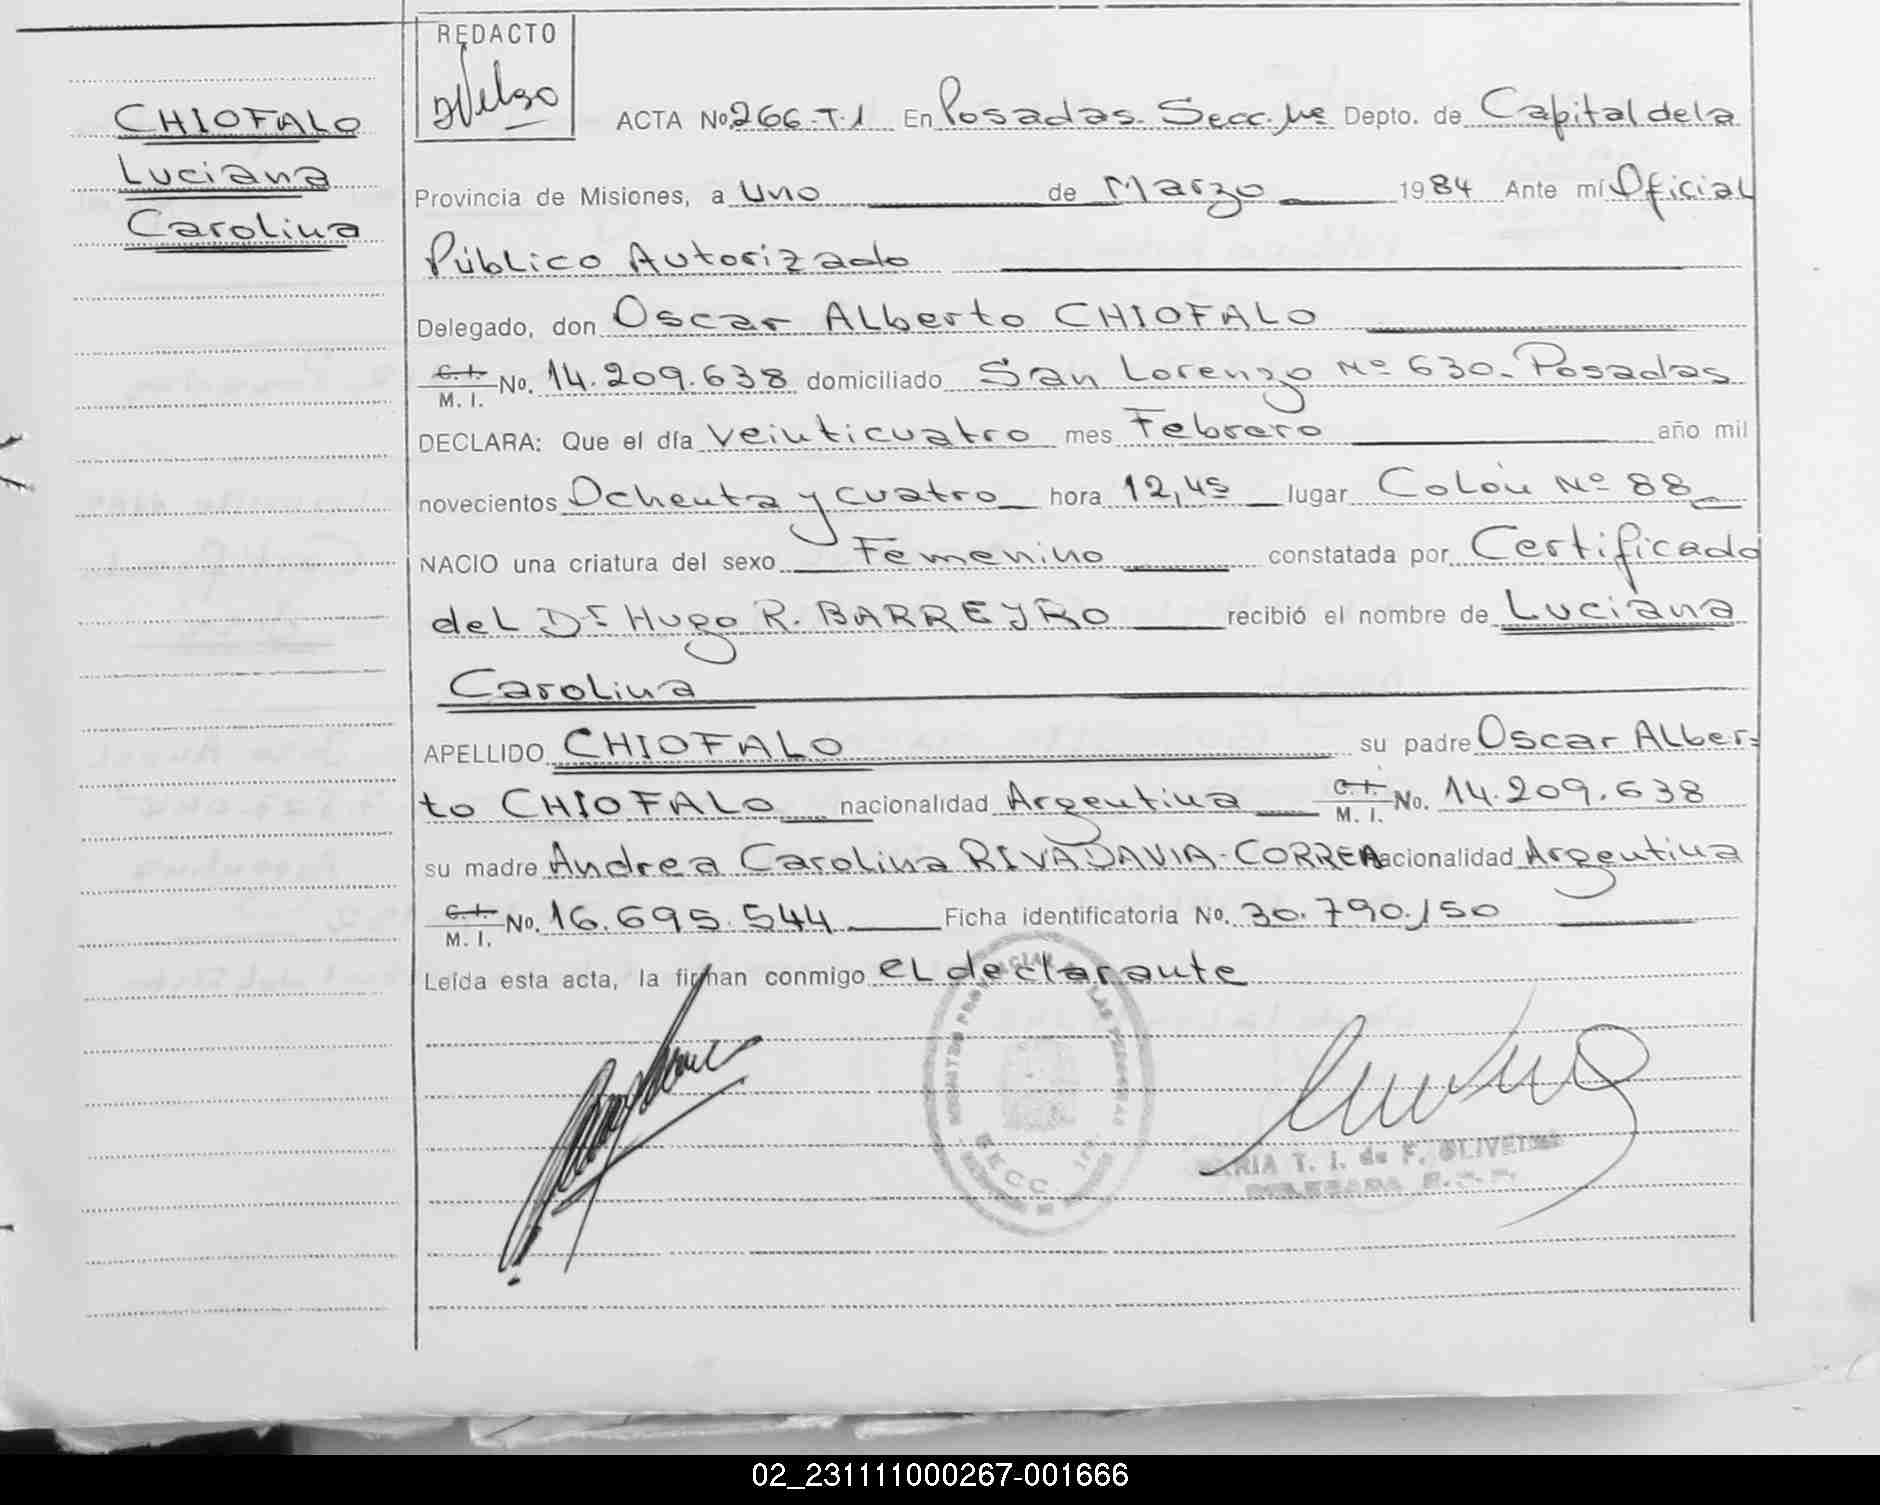 REDACTO
CHIOFALO
Luciana
Carolina
ACTA No 266-T.1 En Posadas. Secc. 1ra Depto. de Capital de la
Provincia de Misiones, a uno de Marzo 1984 Ante mí Oficial
Público Autorizado
Delegado, don Oscar Alberto CHIOFALO
C.I. M.I. No. 14.209.638 domiciliado San Lorenzo Nº 630-Posadas
DECLARA: Que el día veinticuatro mes Febrero año mil
novecientos Ochenta y cuatro hora 12,45 lugar Colón Nº 88
NACIO una criatura del sexo Femenino constatada por Certificado
del Dr Hugo R. BARREYRO recibió el nombre de Luciana
Carolina
APELLIDO CHIOFALO su padre Oscar Alber-
to CHIOFALO nacionalidad Argentina C.I. M.I. No. 14.209.638
su madre Andrea Carolina RIVADAVIA-CORREA nacionalidad Argentina
C.I. M.I. No. 16.695.544 Ficha identificatoria No. 30.790.150
Leída esta acta, la firman conmigo el declarante
REGISTRO PROVINCIAL DE LAS PERSONAS
SECC. 1ra.
MARIA T. I. de F. OLIVEIRA
DELEGADA
02_231111000267-001666